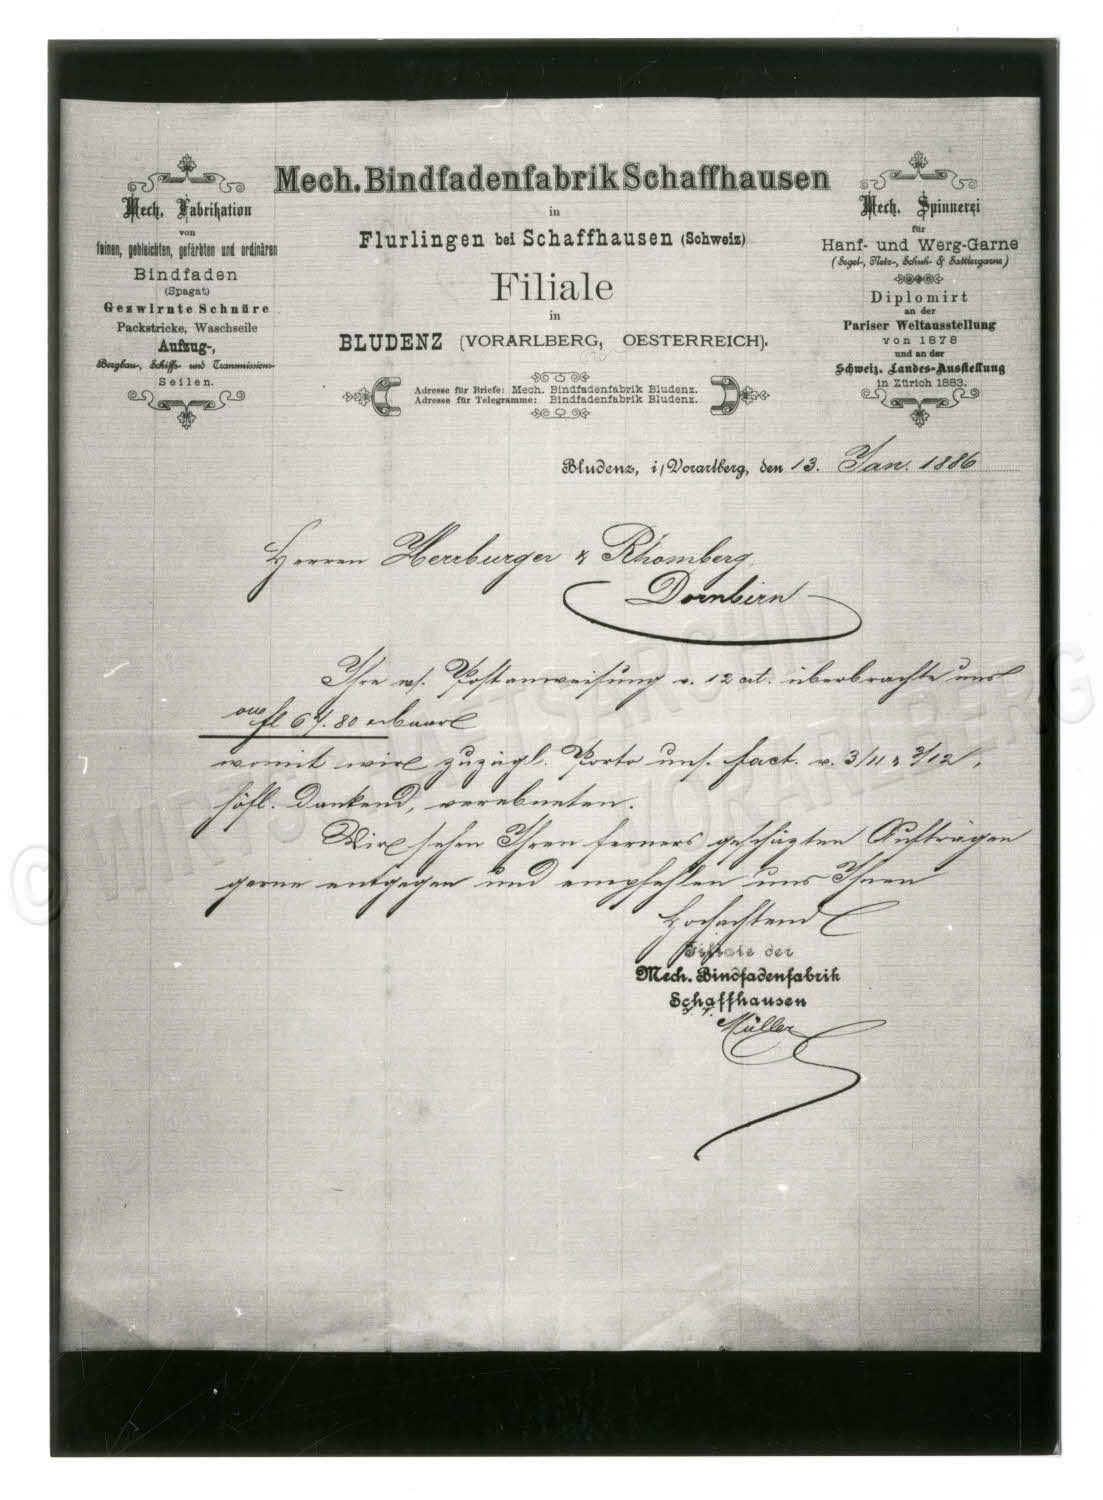 Mech. Bindfadenfabrik Schaffhausen
in
Flurlingen bei Schaffhausen (Schweiz)
Filiale
in
BLUDENZ (VORARLBERG, OESTERREICH).
Adresse für Briefe: Mech. Bindfadenfabrik Bludenz.
Adresse für Telegramme: Bindfadenfabrik Bludenz.
Mech. Fabrikation
von
feinen, gebleichten, gefärbten und ordinären
Bindfaden
(Spagat)
Gezwirnte Schnüre
Packstricke, Waschseile
Aufzug-,
Bergbau-, Schiffs- und Transmissions-
Seilen.
Mech. Spinnerei
für
Hanf- und Werg-Garne
(Segel-, Netz-, Schuh- & Sattlergarne)
Diplomirt
an der
Pariser Weltausstellung
von 1878
und an der
Schweiz. Landes-Ausstellung
in Zürich 1883.
Bludenz, i/Vorarlberg, den 13. Jan. 1886
Herren Herrburger & Rhomberg
Dornbirn
Ihre w. Postanweisung v. 12 ct. überbrachte uns
fl 6. 80
womit wir zuzügl. Porto uns. fact. v. 3/11 & 3/12,
höfl. dankend, verebneten.
Wir sehen Ihren ferners geschäzten Aufträgen
gerne entgegen und empfehlen uns Ihnen
Hochachtend
Filiale der
Mech. Bindfadenfabrik
Schaffhausen
Müller
© WIRTSCHAFTSARCHIV
VORARLBERG